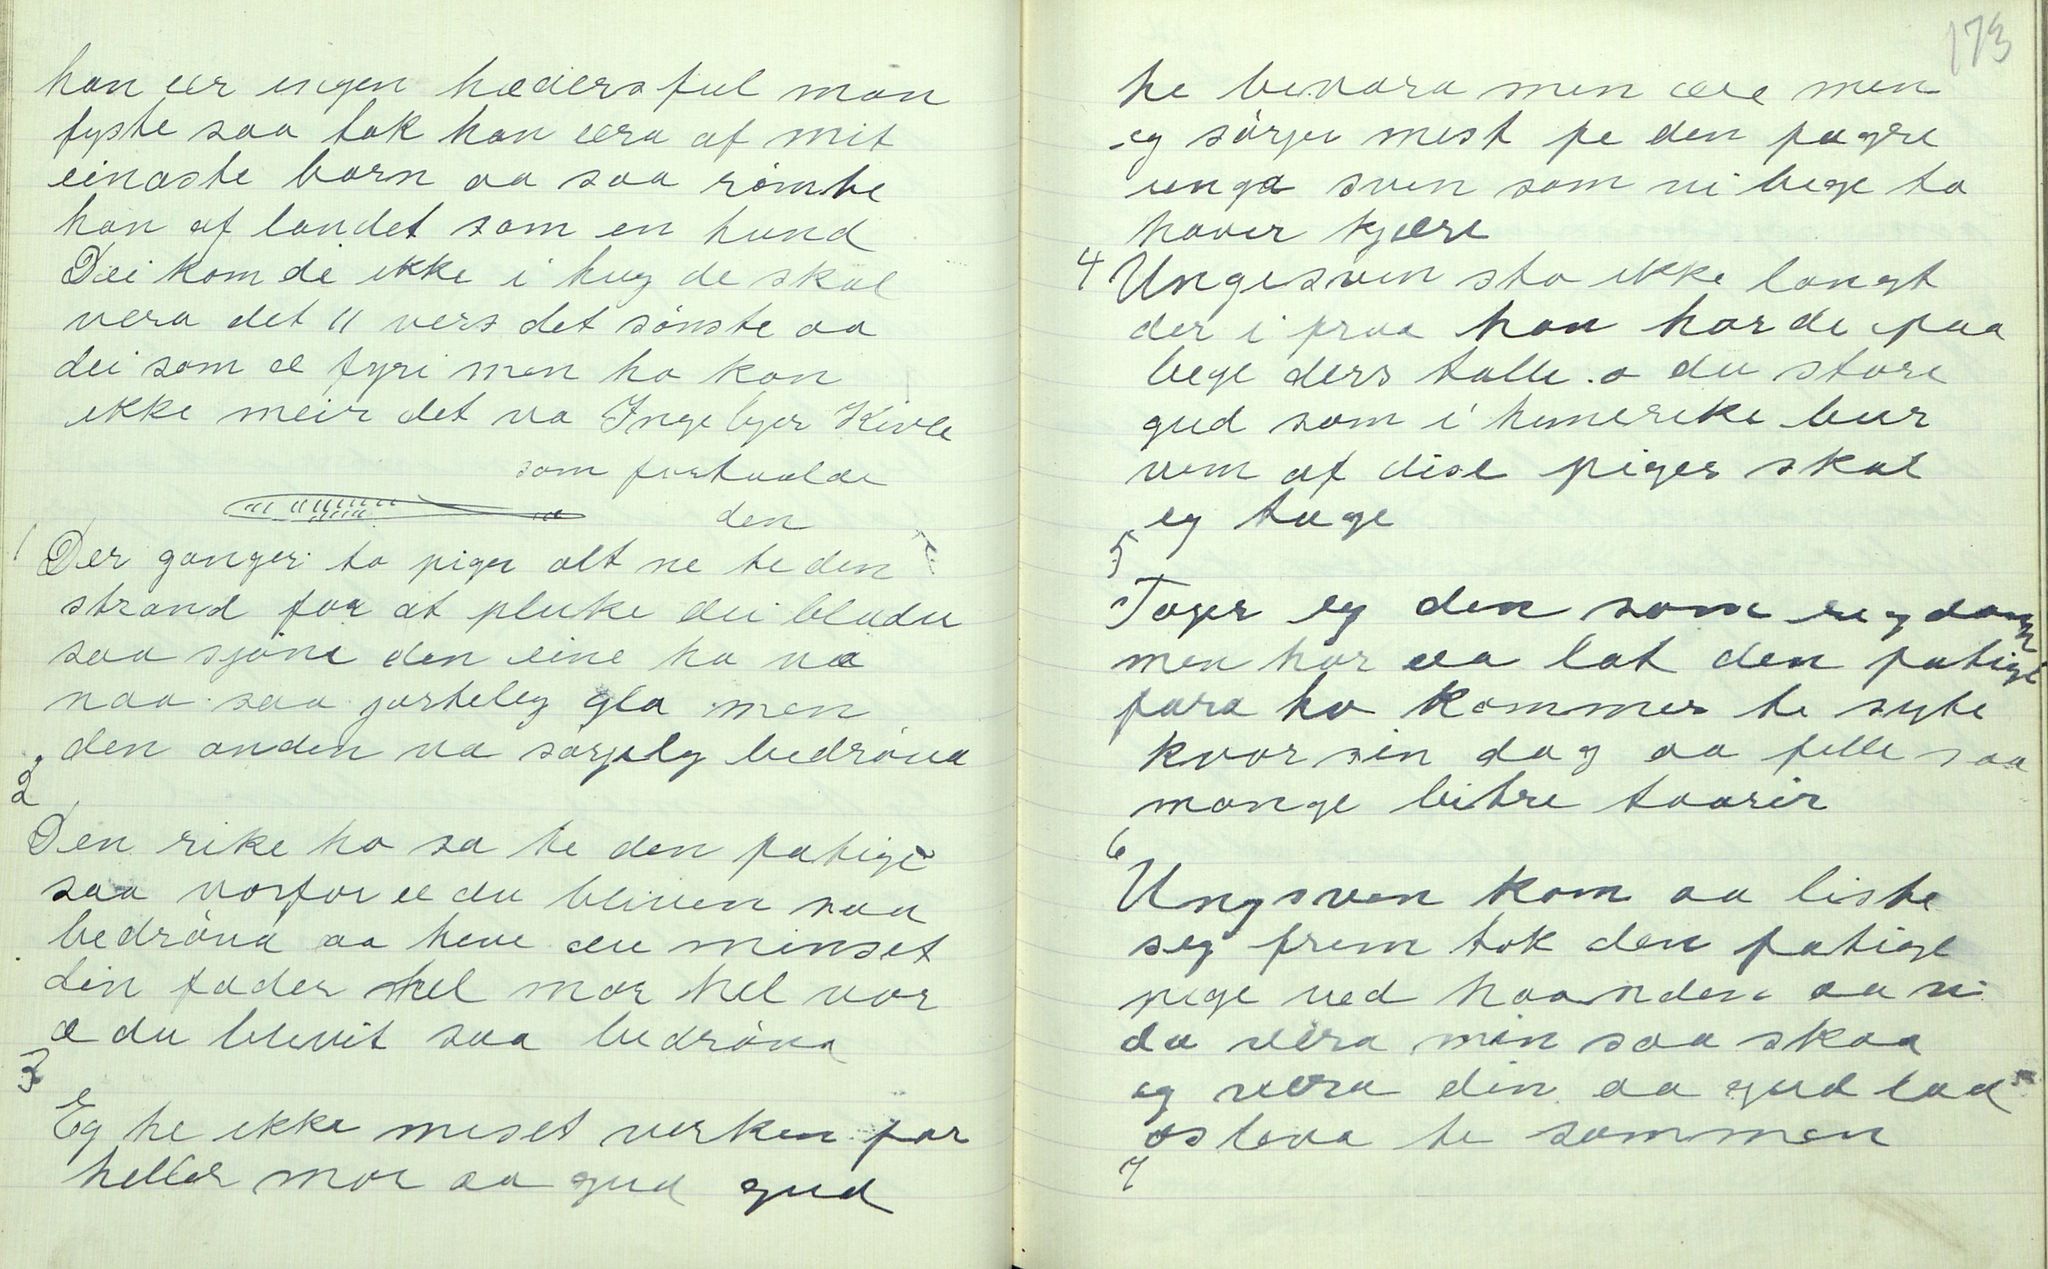 han ær ingen hædersful man
fyste saa tok han æra af mit
einaste barn aa saa römte
han af landet som en hund
Dæi kom de ikke i hug de skal
vera det 11 vers det sönste aa
dei som æ fyri men ho kan
ikke meir det va Ingebjør Kivle
som fortaalde
den
1 Der ganger to piger alt ne te den
strand for at pluke dei bladu
saa sjöne den eine ho va
naa saa jarteleg gla men
den anden va sörgelg bedröva
2
Den rike ho sa te den fatige
saa vorfor æ du bliven saa
bedröva aa heve du minset
din fader hel mor hel vor
æ du blevit saa bedröva
3
Eg he ikke miset verken far
heller mor aa gud gud
173
he bevara men ære men
eg sörjer mest pe den fagre
unga sven som vi bege to
haver kjære
4 Ungesven sto ikke langt
der i fraa han hørde paa
bege ders talle o du store
gud som i himerike bur
vem af dise piger skal
eg tage
5
Tager eg den som rigdom
men har aa lat den fatige
fara ho kommer te syte
kvor sin dag aa felle saa
mange bitre taarer
6
Ungsven kom aa liste
seg frem tok den fatige
pige ved haanden aa vi
du væra min saa skaa
eg væra din aa gud lad
os leva te sammen
7